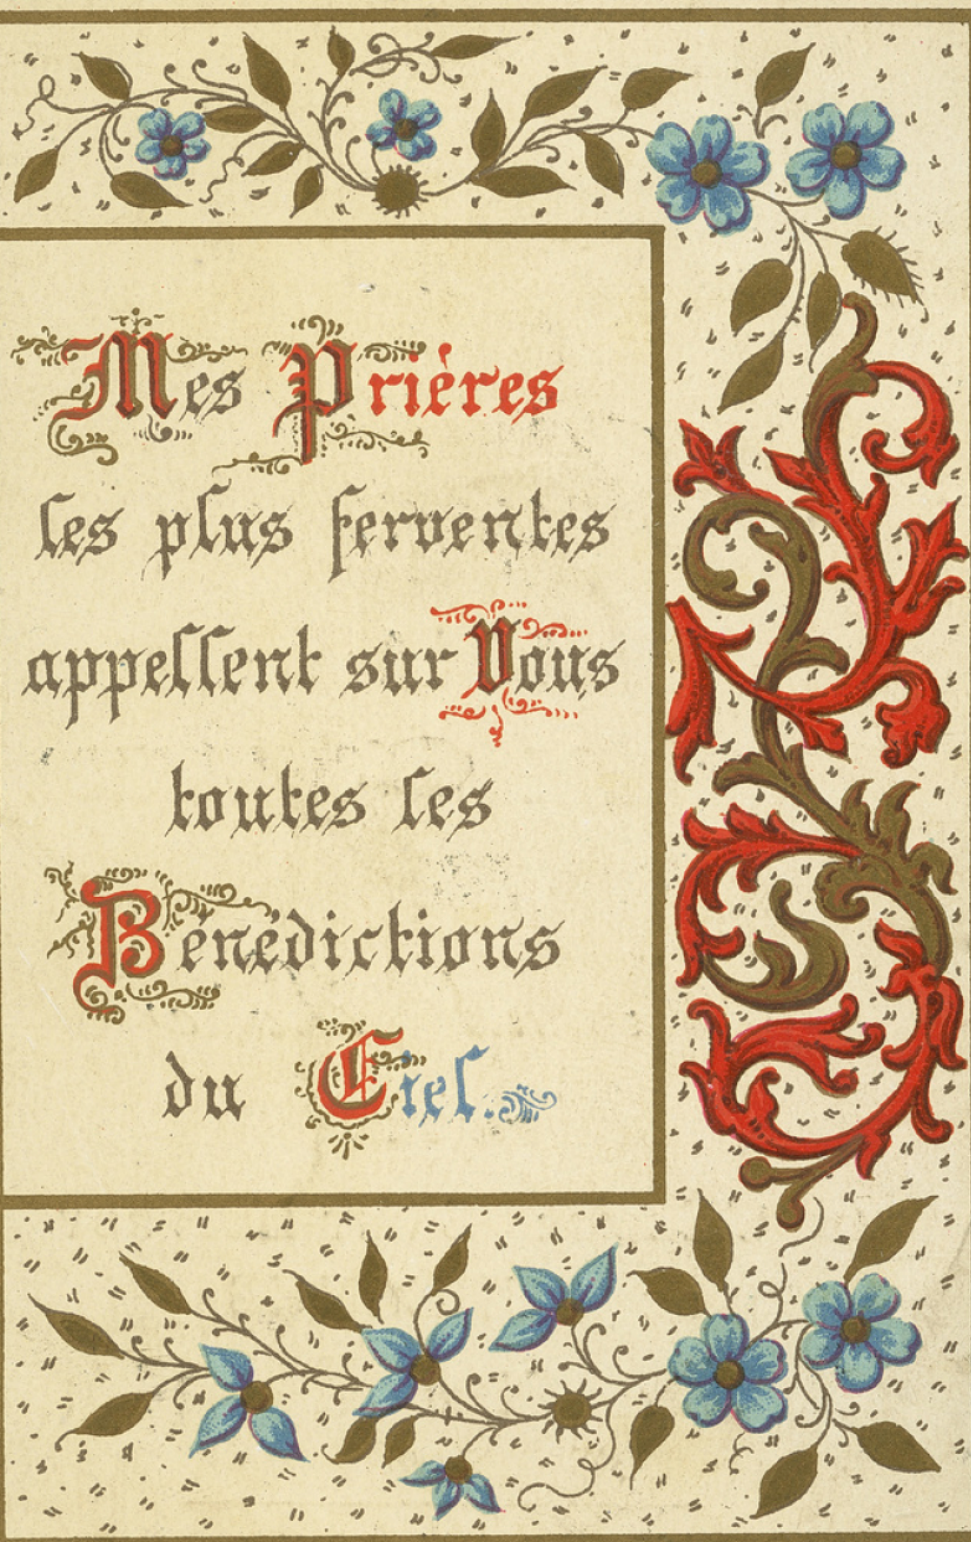 Mes Prières
les plus ferventes
appellent sur Vous
toutes les
Bénédictions
du Ciel.